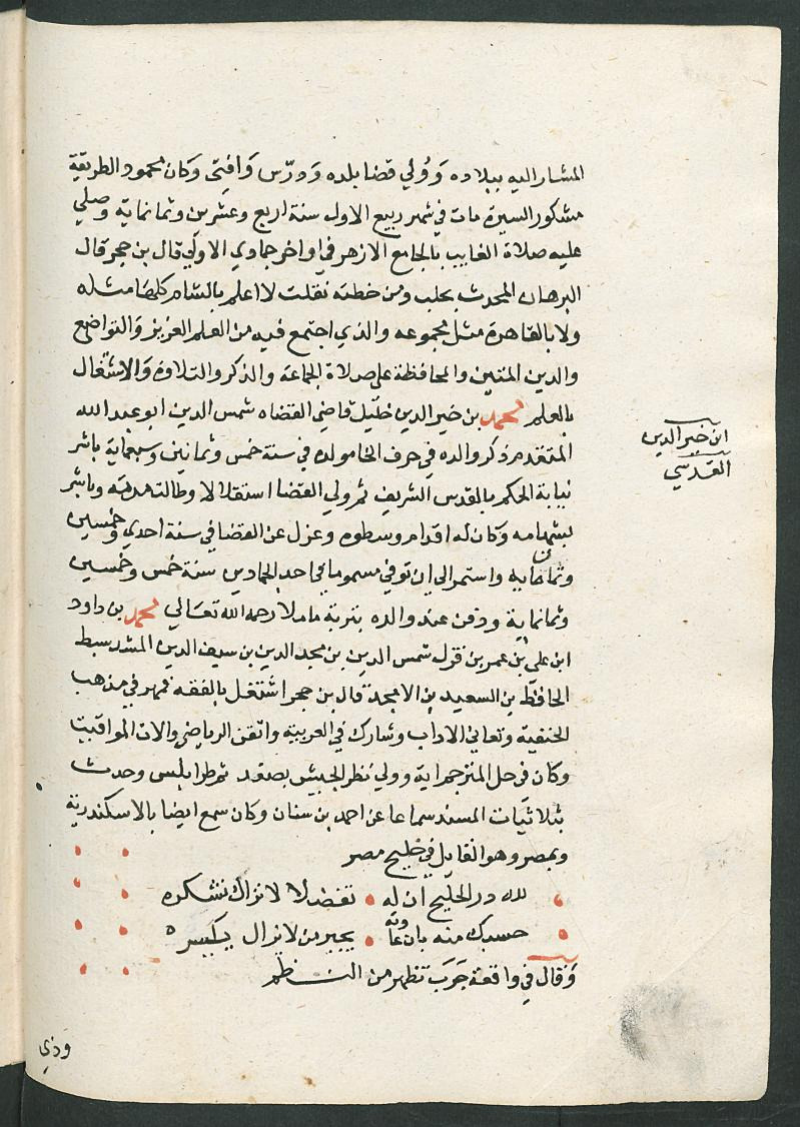 المشار اليه ببلاده وَوُلي قضا بلده وَدرّس وَافتى وَكان محمود الطريقة
مشكور السيرة مات في شهر ربيع الاول سنة اربع وعشرين وثمانماية وصلي
عليه صلاة الغايب بالجامع الازهر في اواخر جمادي الاولى قال بن حجر قال
البرهان المحدث بحلب ومن خطه نقلت لا اعلم بالشام كلها مثله
ولا بالقاهرة مثل مجموعه والذي اجتمع فيه من العلم الغزير وَالتواضع
والدين المتين والمحافظة على صلاة الجماعة والذكر والتلاوة وَالاشتغال
بالعلم محمد بن خير الدين خليل قاضي القضاه شمس الدين ابو عبد الله
المتقدم ذكر والده في حرف الخا مولده في سنة خمس وثمانين وسبعماية باشر
نيابة الحكم بالقدس الشريف ثم ولي القضا استقلالا وطالت مدته وباشر
بشهامه وكان له اقدام وسطوه وعزل عن القضا في سنة احدي وخمسين
وثمانمايه واستمر الى ان توفي مسموما في احد الجمادين سنة خمس وخمسين
وثمانماية ودفن عند والده بتربة ماملا رحمه الله تعالي محمد بن داود
ابن علي بن عمر بن قزل شمس الدين بن مجد الدين بن سيف الدين المشد سبط
الحافظ بن السعيد بن الامجد قال بن حجر اشتغل بالفقه فمهر في مذهب
الحنفية وتعاني الاداب وشارك في العربية واتقن الرياضي والات المواقيت
وكان في حل المترجم اية وولي نظر الجيش بصفد ثم طرابلس وحدث
بثلاثيات المسند سماعا عن احمد بن سنان وكان سمع ايضا بالاسكندرية
وبمصر وهو القايل في خليج مصر
لله در الخليج ان له تفضلا لا نزال نشكره
حسبك منه بان عادته يجبر من لا يزال يكسره
وَقال في واقعة جَرَت تظهر من النظم
وذي
ابن خير الدين
القدسي